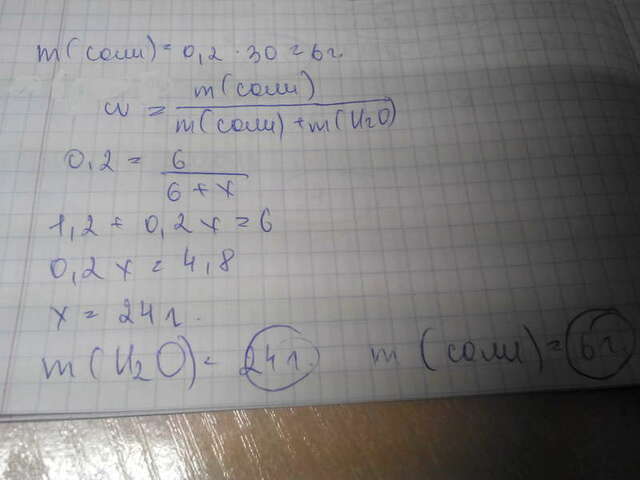 m(соли) = 0,2 · 30 = 6г.
w = m(соли) / m(соли) + m(H2O)
0,2 = 6 / 6 + x
1,2 + 0,2x = 6
0,2x = 4,8
x = 24 г.
m(H2O) = 24г. m(соли) = 6г.